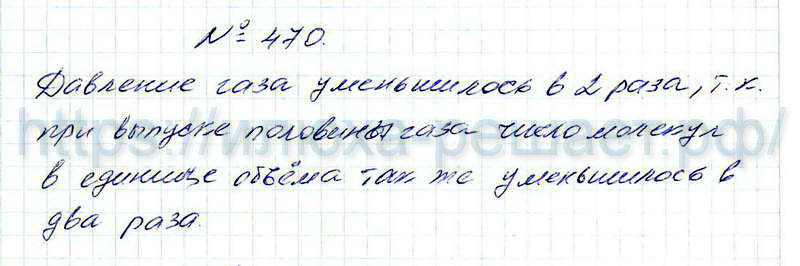 № 470.
Давление газа уменьшилось в 2 раза, т.к.
при выпуске половины газа число молекул
в единице объёма так же уменьшилось в
два раза.